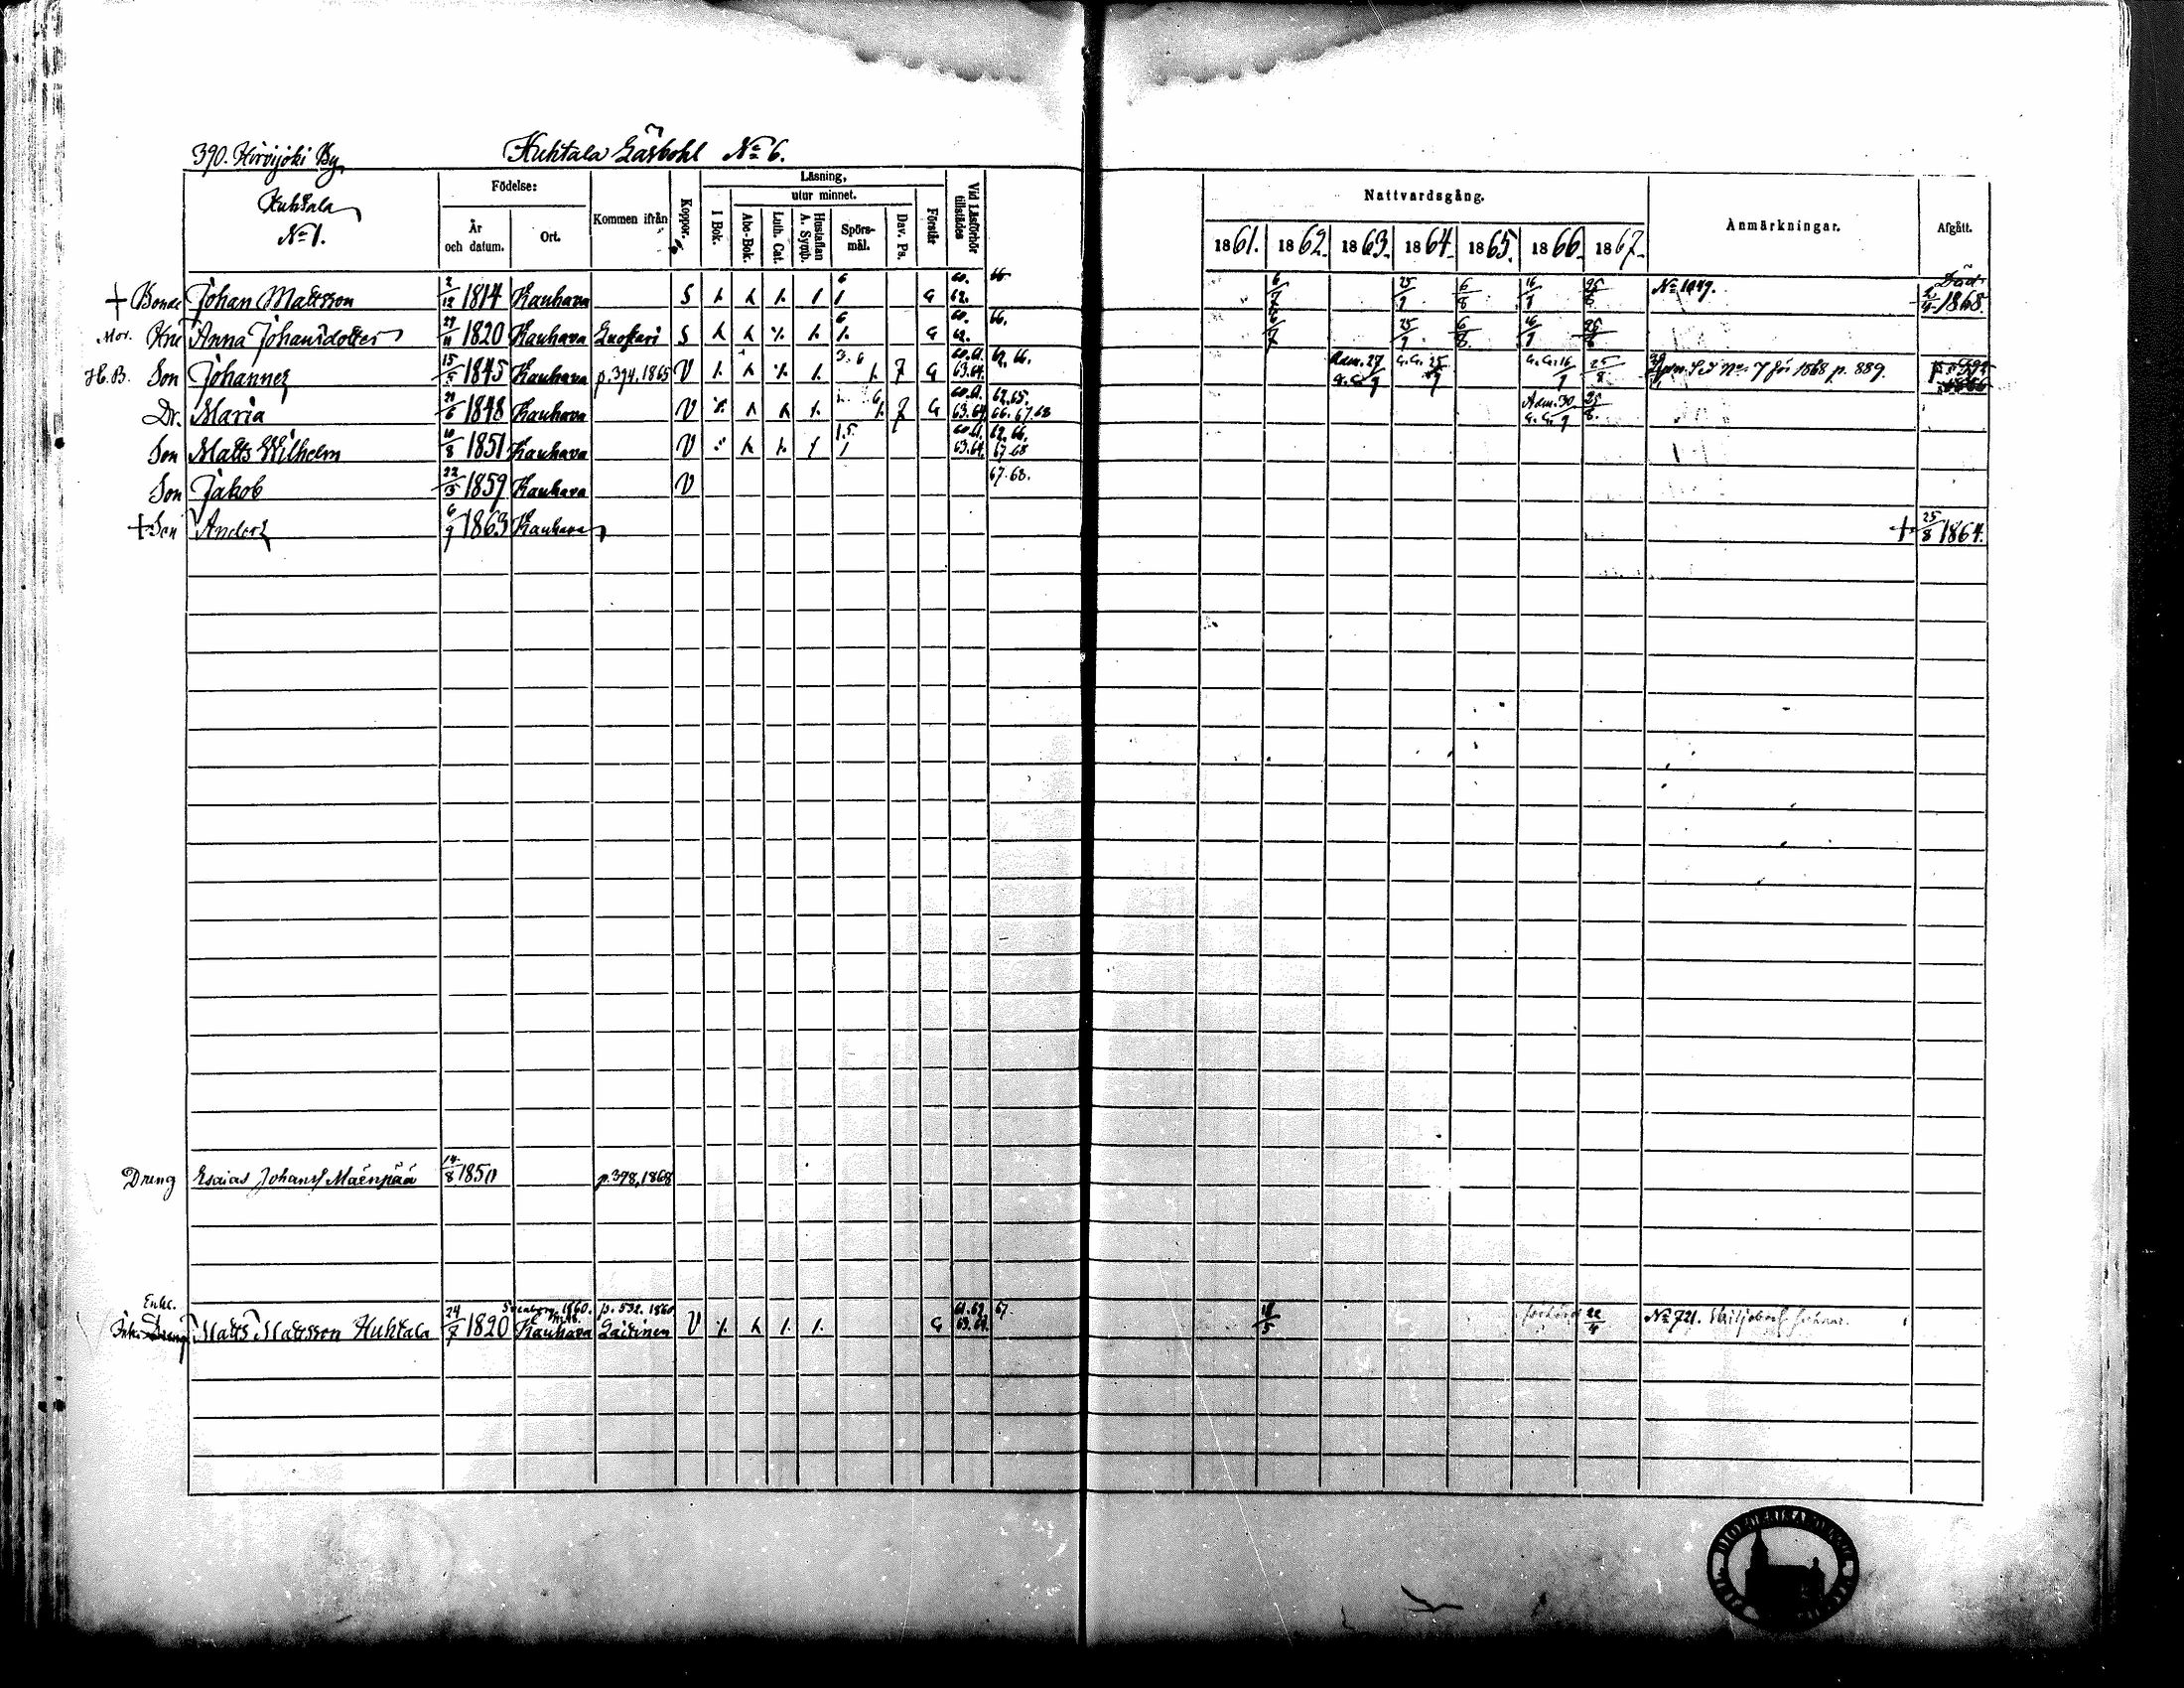 390. Hirvijoki By
Huhtala Gäsbohl No 6.
Huhtala
No 1.
Födelse:
År och datum.
Ort.
Kommen ifrån
Koppor.
Läsning,
utur minnet.
I Bok.
Abc-Bok.
Luth. Cat.
Hustaflan A. Symb.
Spörs-mål.
Dav. Ps.
Förstår
Vid Läsförhör tillstädes
Nattvardsgång.
1861. 1862. 1863. 1864. 1865. 1866. 1867.
Anmärkningar.
Afgått.
+ Bonde Johan Mattsson 2/12 1814 Kauhava S G 60. 62. 66 6/7 25/9 6/8 16/9 25/8 No 1049. Död 1868
Mor. Hru Anna Johansdotter 1820 Kauhava Luoskari S G 60. 62. 66. 6/7 25/9 6/8 16/9 25/8
H.B. Son Johannes 15/5 1845 Kauhava p.394,1865 V 7 G 60.61. 63.64. 66. Adm. 27 G.G. 25/9 G.G. 16/9 25/8 No 7 för 1868 p. 889.
Dr. Maria 21/6 1848 Kauhava V 7 G 60.61. 63.64. 62.65. 66.67.68 Adm. 30 G.G. 9 25/8.
Son Matts Wilhelm 10/8 1851 Kauhava V 1.5. 60.61. 63.64. 62.66. 67.68
Son Jakob 22/5 1859 Kauhava V 67.68.
+ Son Anders 6/9 1863 Kauhava + 25/8 1864.
Dreng Esaias Johans Mäenpää 14/8 1850 p.378,1868
Enkl.
Inh. Dreng Matts Mattsson Huhtala 24/7 1820 1860. Kauhava p. 532. 1860 Laitinen V G 61.62. 63.64. 67. 18/5 22/4 No 721.